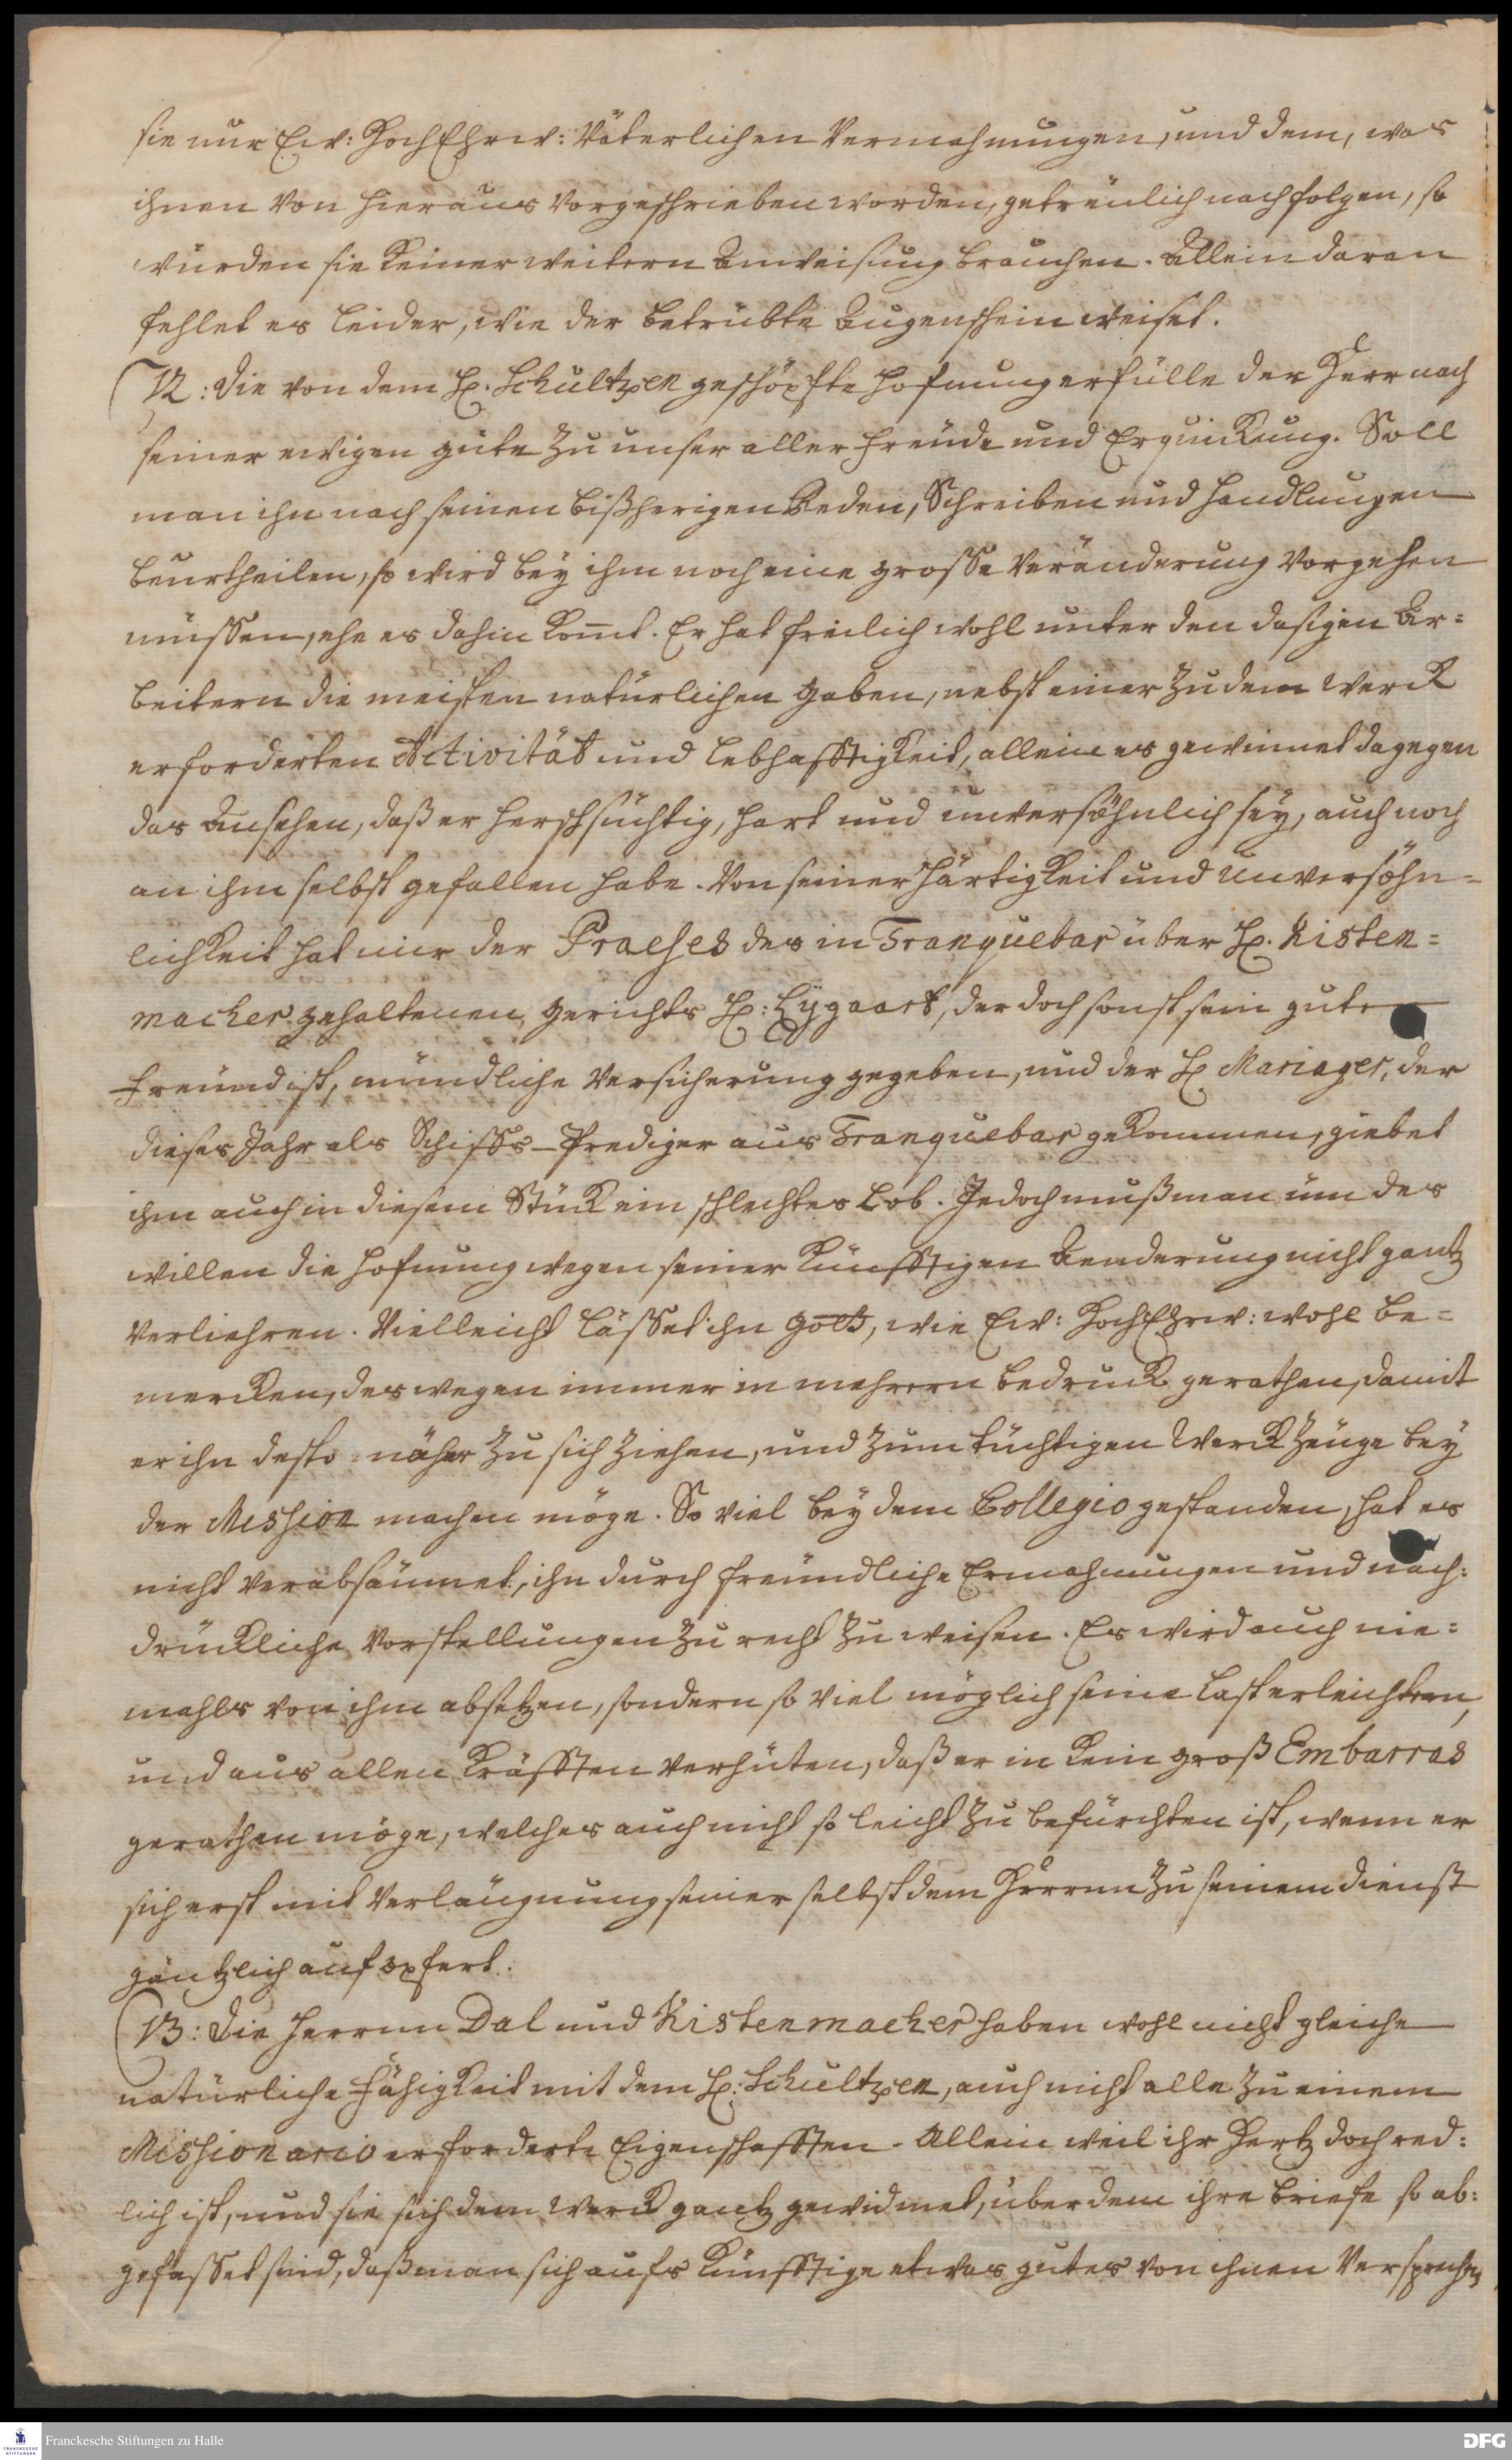 sie nur Ew: HochEhrw: Väterlichen Vermahnungen, und dem, was
ihnen von hieraus vorgeschrieben worden, getreulich nachfolgen, so
würden sie keiner weitern Anweisung brauchen. Allein daran
fehlet es leider, wie der betrübte Augenschein weiset.
12: Die von dem H. Schultzen geschöpfte Hofnung erfülle der Herr nach
seiner ewigen güte zu unser aller Freude und Erquickung. Soll
man ihn nach seinen bißherigen Reden, Schreiben und Handlungen
beurtheilen, so wird bey ihm noch eine grosse Veränderung vorgehen
müssen, ehe es dahin komt. Er hat freilich wohl unter den dasigen Ar=
beitern die meisten natürlichen Gaben, nebst einer zu dem Werck
erforderten Activität und Lebhafftigkeit, allein es gewinnet dagegen
das Ansehen, daß er herschsüchtig, hart und unversöhnlich sey, auch noch
an ihm selbst gefallen habe. Von seiner Härtigkeit und Unversöhn=
lichkeit hat mir der Praeses des in Tranquebar über H. Kisten=
macher gehaltenen Gerichts H: Lygaart, der doch sonst sein guter
Freund ist, mündliche Versicherung gegeben, und der H Mariager, der
dieses Jahr als Schiffs-Prediger aus Tranquebar gekommen, giebet
ihm auch in diesem Stück ein schlechtes Lob. Jedoch muß man üm des
willen die Hofnung wegen seiner künfftigen Aenderung nicht gantz
verliehren. Vielleicht lässet ihn Gott, wie Ew: HochEhrw: wohl be=
mercken, deswegen immer in mehrern bedruck gerathen, damit
er ihn desto näher zu sich ziehen, und zum tüchtigen Werckzeuge bey
der Mission machen möge. So viel bey dem Collegio gestanden, hat es
nicht verabsäumet, ihn durch freundliche Ermahnungen und nach:
drückliche Vorstellungen zu recht zu weisen. Es wird auch nie=
mahls von ihm absetzen, sondern so viel möglich seine Last erleichtern,
und aus allen Kräfften verhüten, daß er in kein groß Embarras
gerathen möge, welches auch nicht so leicht zu befürchten ist, wenn er
sich erst mit Verläugnung seiner selbst dem Herrn zu seinem Dienst
gäntzlich aufopfert.
13: Die Herrnn Dal und Kistenmacher haben wohl nicht gleiche
natürliche Fähigkeit mit dem H: Schultzen, auch nicht alle zu einem
Missionario erforderte Eigenschafften. Allein weil ihr Hertz doch red:
lich ist, und sie sich dem Werck gantz gewidmet, über dem ihre Briefe so ab:
gefasset sind, daß man sich aufs künfftige etwas gutes von ihnen versprechen
Franckesche Stiftungen zu Halle
DFG